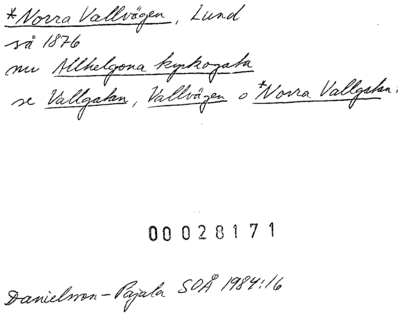 *Norra Vallvägen, Lund
så 1876
nu Allhelgona kyrkogata
se Vallgatan, Vallvägen o *Norra Vallgatan.
00028171
Danielson-Pajala SOÅ 1984:16